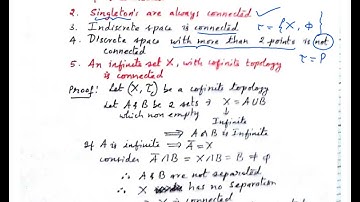 2. Singleton's are always connected ✓
3. Indiscrete space is connected τ = {X, ϕ}
4. Discrete space with more than 2 points is not
connected τ = P
5. An infinite set X, with cofinite topology
is connected
Proof: Let (X, τ) be a cofinite topology
Let A & B be 2 sets ∋ X = A∪B
which non empty ↓ Infinite
⇒ A or B is Infinite
If A is infinite ⇒ A̅ = X
consider A̅ ∩ B = X ∩ B = B ≠ ϕ
∴ A & B are not separated
∴ X has no separation
X is connected